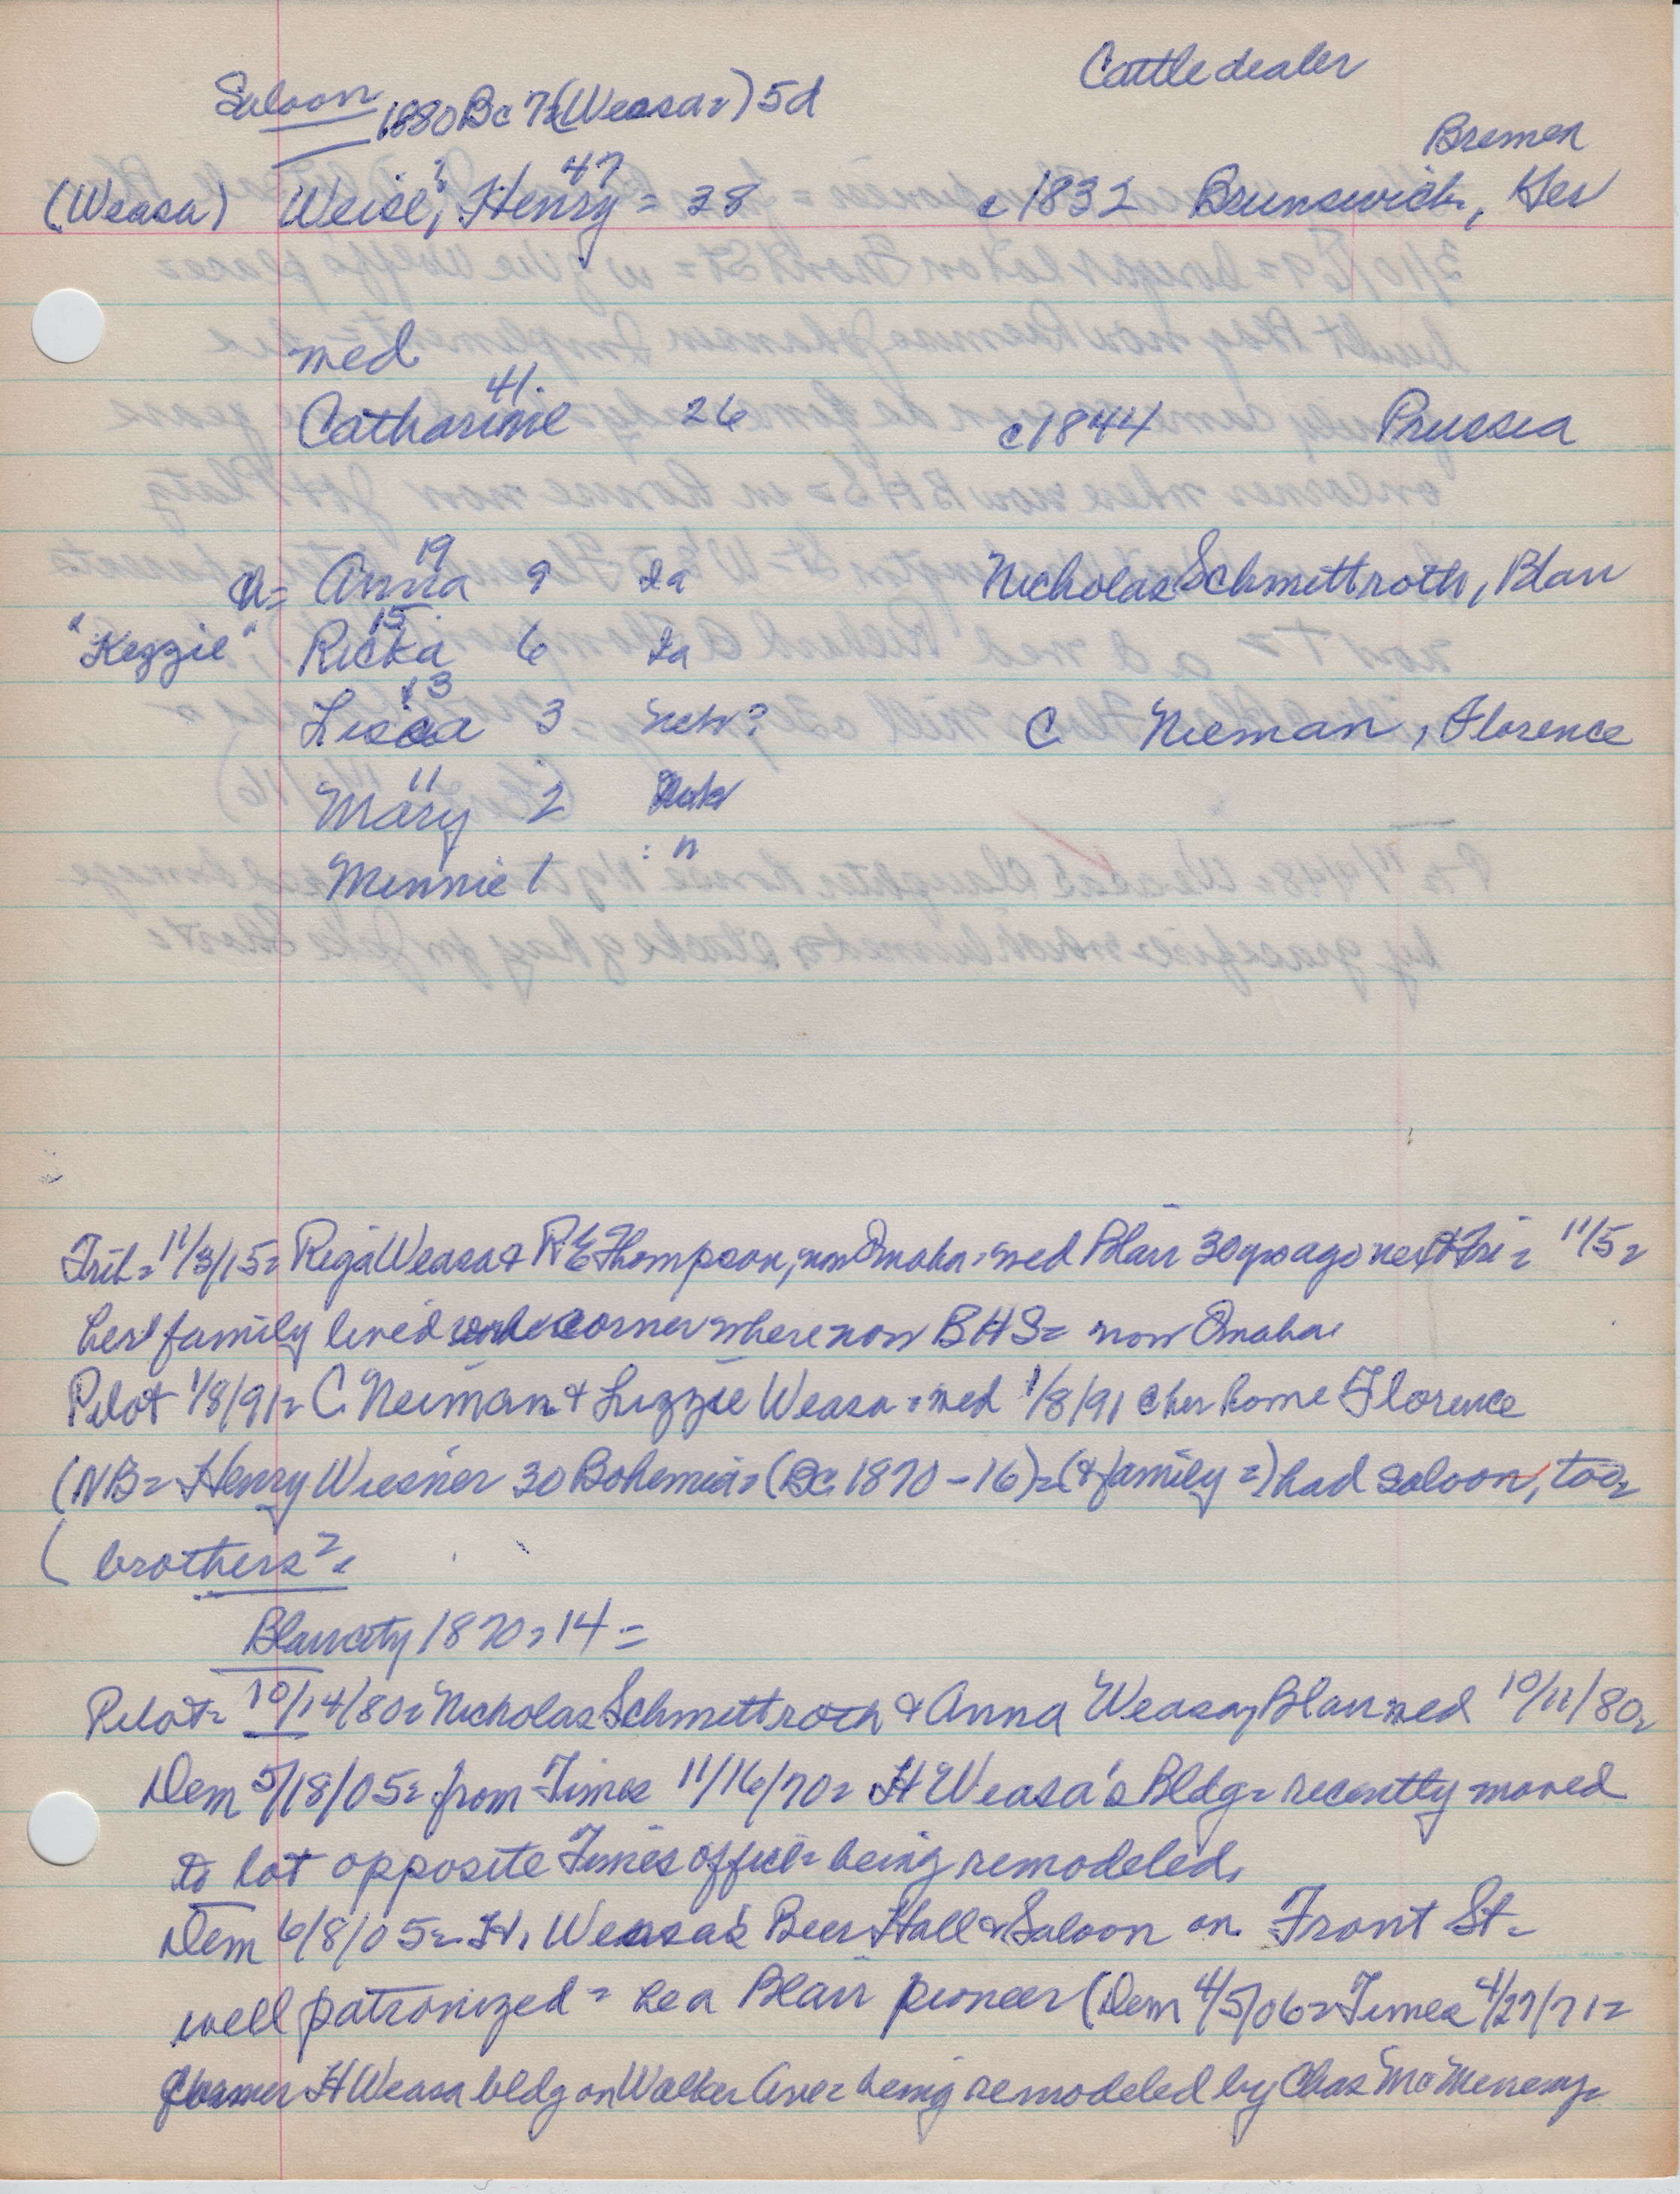 Cattle dealer
Saloon 1880 Bc 7= (Weasa=) 5d
Bremen
47
(Weasa) Weise, Henry = 38 c1832 Brunswick, Ger
med
41.
Catharine 26 c1844 Prussia
19
a= Anna 9 Ia Nicholas Schmettroth, Blair
15
"Kezzie" Ricka 6 Ia
13
Lisca 3 Neb? C Nieman, Florence
11
Mary 2 Neb
Minnie 1 : "
Trib= 11/3/15= Rega Weasa & R E Thompson, now Omaha= med Blair 30 yrs ago next Fri= 11/5=
her family lived on corner where now BHS= now Omaha=
Pilot 1/8/91= C. Neiman & Lizzie Weasa= med 1/8/91 @ her home Florence
(NB= Henry Wiesner 30 Bohemia= (Bc 1870-16)= (& family=) had saloon, too=
( brothers?=
Blair city 1870= 14=
Pilot= 10/14/80= Nicholas Schmettroth & Anna Weasa, Blair med 10/11/80=
Dem 5/18/05= from Times 11/16/70= H Weasa's Bldg= recently moved
to lot opposite Times office= being remodeled,
Dem 6/8/05= H. Weasa's Beer Hall & Saloon on Front St=
well patronized= he a Blair pioneer (Dem 4/5/06= Times 4/27/71=
former H Weasa bldg on Walker Ave= being remodeled by Chas McMenemy=